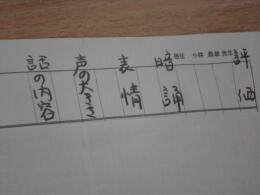 評価
担任 小林 先生
暗誦
表情
声の大きさ
話の内容